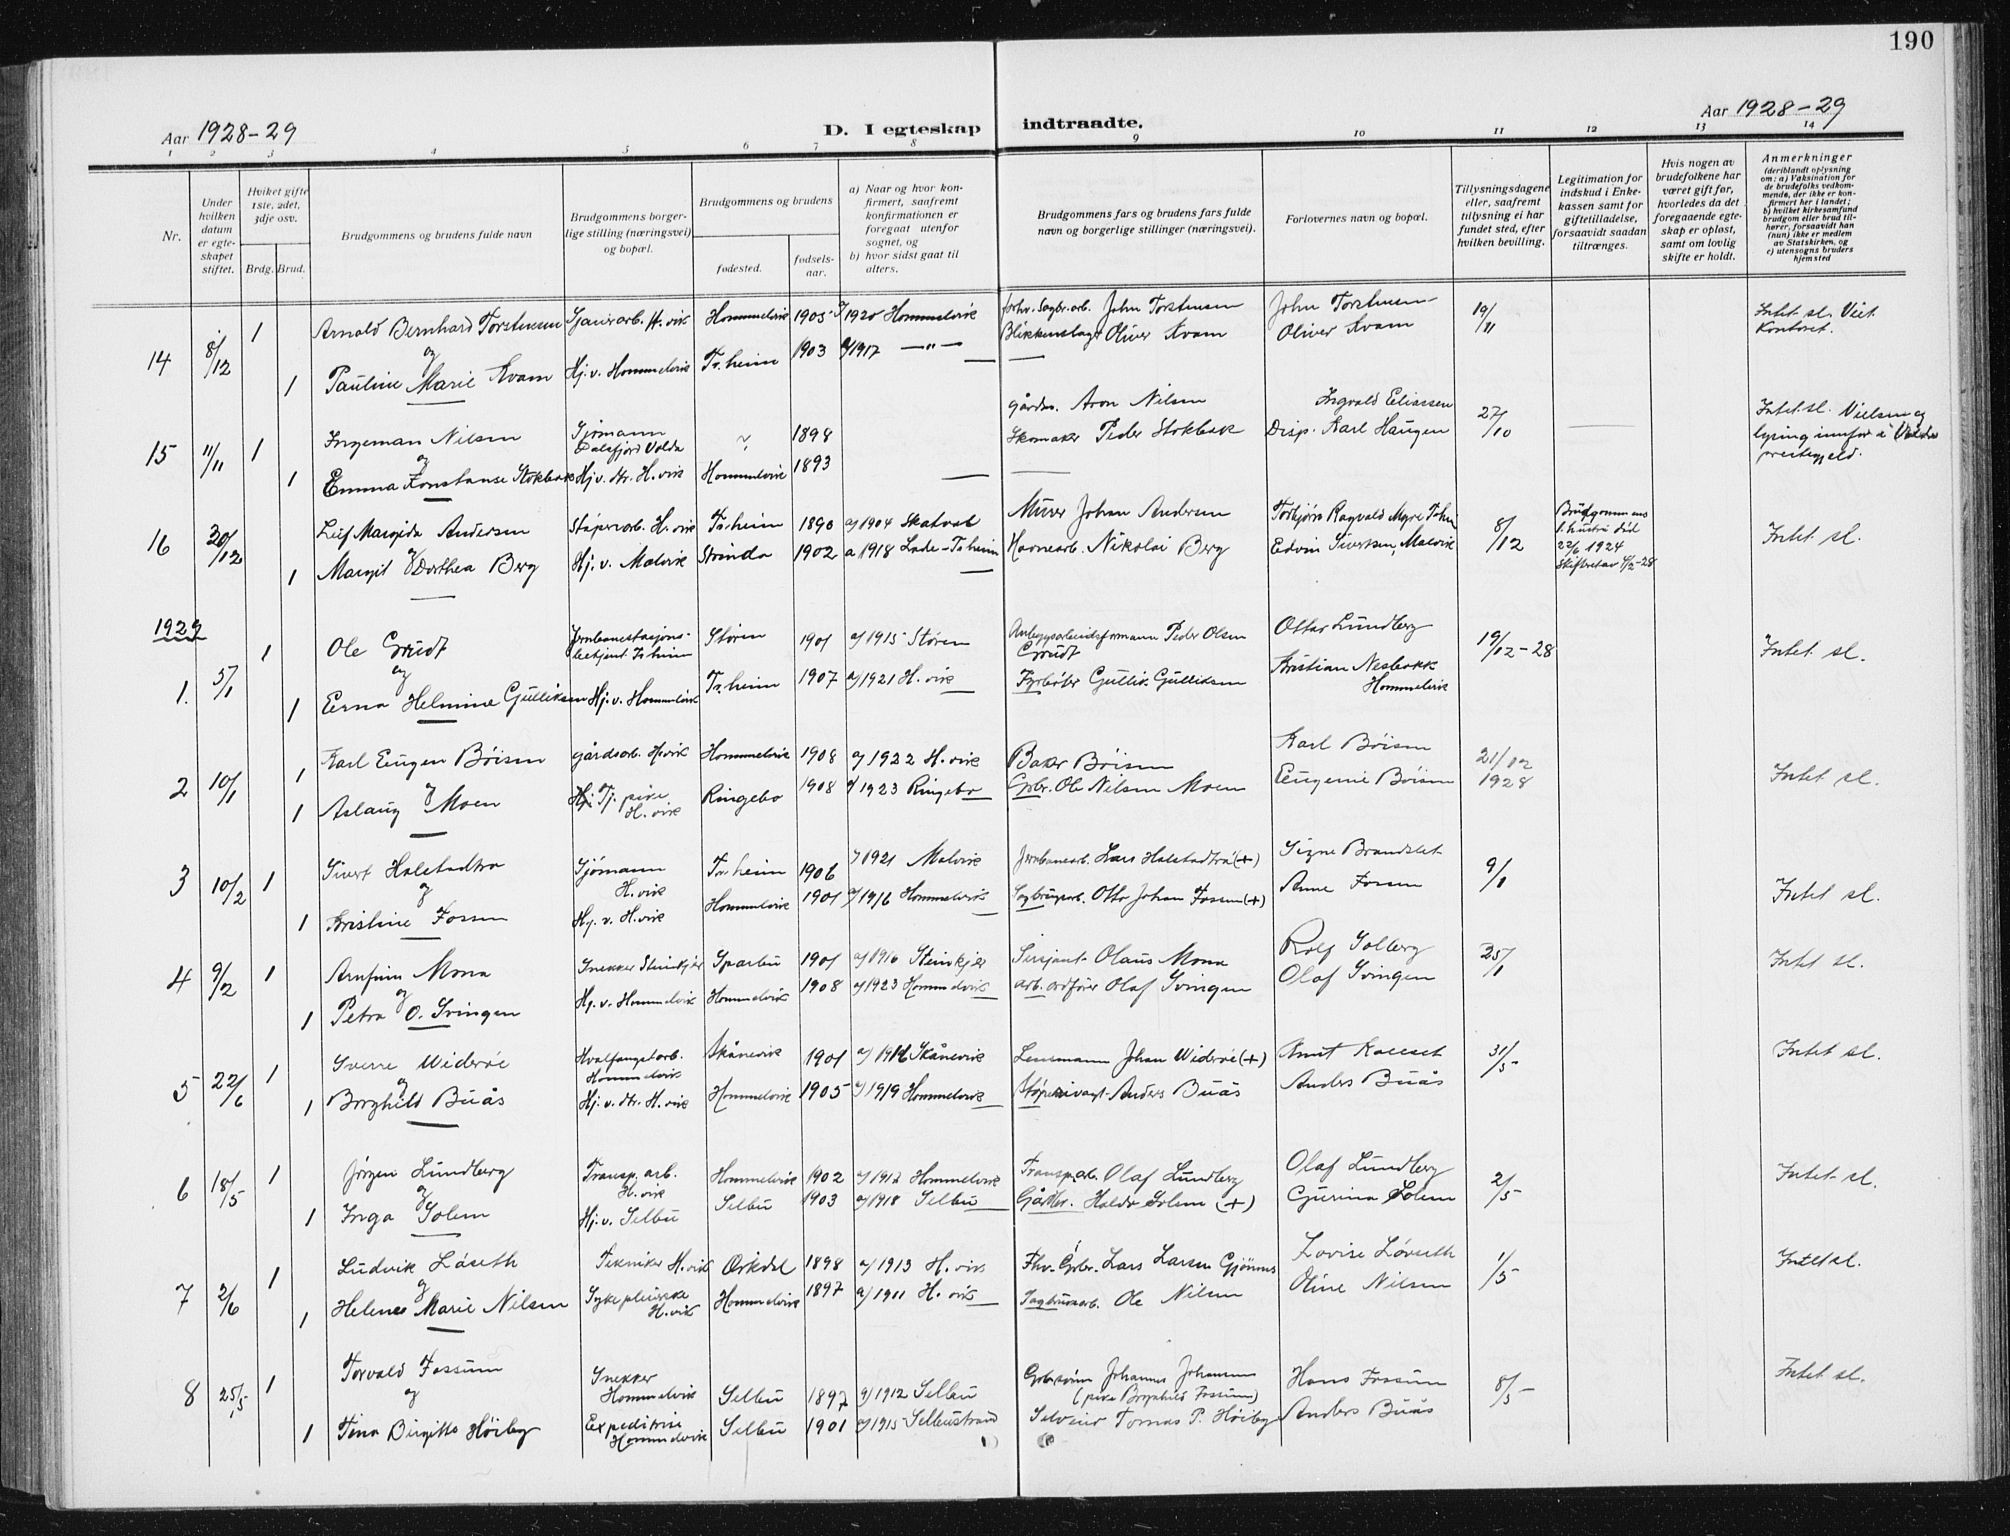 190
Aar 1928-29
D. I egteskap indtraadte.
Aar 1928-29
1 2 3 4 5 6 7 8 9 10 11 12 13 14
Nr.
Under hvilken datum er egteskapet stiftet.
Hvilket gifte 1ste, 2det, 3dje osv.
Brdg. Brud.
Brudgommens og brudens fulde navn
Brudgommens borgerlige stilling (næringsvei) og bopæl.
Brudgommens og brudens
fødested.
fødselsaar.
a) Naar og hvor konfirmert, saafremt konfirmationen er foregaat utenfor sognet, og
b) hvor sidst gaat til alters.
Brudgommens fars og brudens fars fulde navn og borgerlige stillinger (næringsvei).
Forlovernes navn og bopæl.
Tillysningsdagene eller, saafremt tillysning ei har fundet sted, efter hvilken bevilling.
Legitimation for indskud i Enkekassen samt for giftetilladelse, forsaavidt saadan tiltrænges.
Hvis nogen av brudefolkene har været gift før, hvorledes da det foregaaende egteskap er opløst, samt om lovlig skifte er holdt.
Anmerkninger (deriblandt oplysning om: a) Vaksination for de brudefolks vedkommende, der ikke er konfirmert her i landet; b) hvilket kirkesamfund brudgom eller brud tilhører, forsaavidt han (hun) ikke er medlem av Statskirken, og c) utensogns bruders hjemsted
14 8/12 1 Arnold Bernhard Torstensen H.vik Hommelvik 1905 1920 Hommelvik John Torstensen John Torstensen 19/11 Intet sl. Viet Kontoret.
og
1 Pauline Marie Kvam Hj. v. Hommelvik Tr.heim 1903 1917 —"— Blikkenslager Oliver Kvam Oliver Kvam
15 11/11 1 Ingeman Nilsen Sjømann Dalsfjord Volda ? 1898 gårdbr. Aron Nilsen Ingvald Eliassen 27/10 Intet sl. Vielsen og lysning innfør i Volda prestegjeld.
og
1 Emma Konstanse Stokbak Hj. v. Str. H.vik Hommelvik 1893 Skomaker Peder Stokbak Disp. Karl Haugen
16 30/12 Leif Andersen Støperiarb. H.vik Tr.heim 1890 a/1904 Skatval Murer Johan Andersen Torbjørn Ragvald Myre Tr.hm 8/12 Brudgommens f. hustru død 22/6 1924 Intet sl.
og
1 Margit Dorthea Berg Hj. v. Malvik Strinda 1902 a 1918 Lade-Tr.heim Havnearb. Nikolai Berg Edvin Sivertsen, Malvik
1929
1. 5/1 1 Ole Grudt Jernbanestasjonsbetjent Tr.heim Støren 1901 a/1915 Støren Anleggsarbeidsformann Peder Olsen Grudt Ottar Lundberg 19/12-28 Intet sl.
og
1 Erna Helmine Gulliksen Hj. v. Hommelvik Tr.heim 1907 a/1921 H.vik Fyrbøter Gullik Gulliksen Kristian Nesbakk Hommelvik
2 10/1 1 Karl Eugen Bøisen gårdsarb. H.vik Hommelvik 1908 a/1922 H.vik Baker Bøisen Karl Bøisen 21/12 1928 Intet sl.
og
1 Aslaug Moen Tj. pike H.vik Ringebo 1908 a/1923 Ringebo Grbr. Ole Nilsen Moen Eugenie Bøisen
3 10/2 1 Sivert Halstadtrø Sjømann H.vik Tr.heim 1906 1921 Malvik Jernbanearb. Lars Halstadtrø (+) Signe Brandslet 9/1 Intet sl.
og
1 Kristine Fossen Hj. v. H.vik Hommelvik 1901 a/1916 Hommelvik Sagbruksarb. Otto Johan Fossen (+) Anne Fossen
4 9/2 1 Arnfinn Mona Snekker Steinkjer Sparbu 1901 a/1916 Steinkjer Sersjant Olaus Mona Rolf Solberg 25/1 Intet sl.
og
1 Petra O. Svingen Hj. v. Hommelvik Hommelvik 1908 a/1923 Hommelvik Arb. ordfører Olaf Svingen Olaf Svingen
5 22/6 1 Sverre Widerøe Hvalfangstarb. Hommelvik Skånevik 1901 Skånevik Lensmann Johan Widerøe (+) 31/5 Intet sl.
og
1 Borghild Buås Hj. v. Str. H.vik Hommelvik 1905 a/1919 Hommelvik Anders Buås Anders Buås
6 18/5 1 Jørgen Lundberg Transp. arb. H.vik Hommelvik 1902 a/1917 Hommelvik Transp.arb. Olaf Lundberg Olaf Lundberg 2/5 Intet sl.
og
1 Inga Solem Hj. v. Selbu Selbu 1903 a/1918 Selbu Gårdbr. Haldor Solem (+) Gjerina Solem
7 2/6 1 Ludvik Løseth Tekniker H.vik Orkdal 1898 a/1913 H.vik Fhv. Grbr. Lars Larsen Gjønnes Lovise Løvseth 1/5 Intet sl.
og
1 Helene Marie Nilsen Sykepleierske H.vik Hommelvik 1897 a/1911 H.vik Sagbruksarb. Ole Nilsen Oline Nilsen
8 25/5 1 Torvald Fossum Snekker Hommelvik Selbu 1897 a/1912 Selbu Johannes Johansen (pike Borghild Fossum) Hans Fossum 8/5 Intet sl.
og
1 Tina Birgitte Høiby Expeditrise Hommelvik Selbu 1901 a/1915 Selbustrand Selveier Tomas P. Høiby Anders Buås